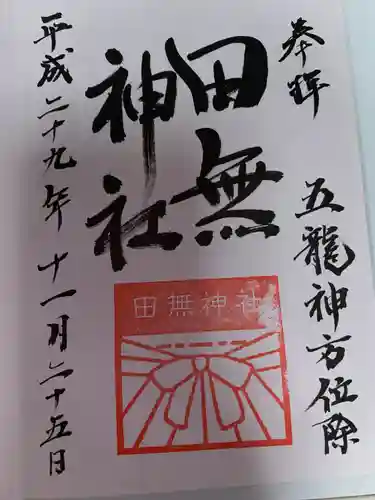 奉拝
五龍神方位除
田無
神社
平成二十九年十一月二十五日
田無神社